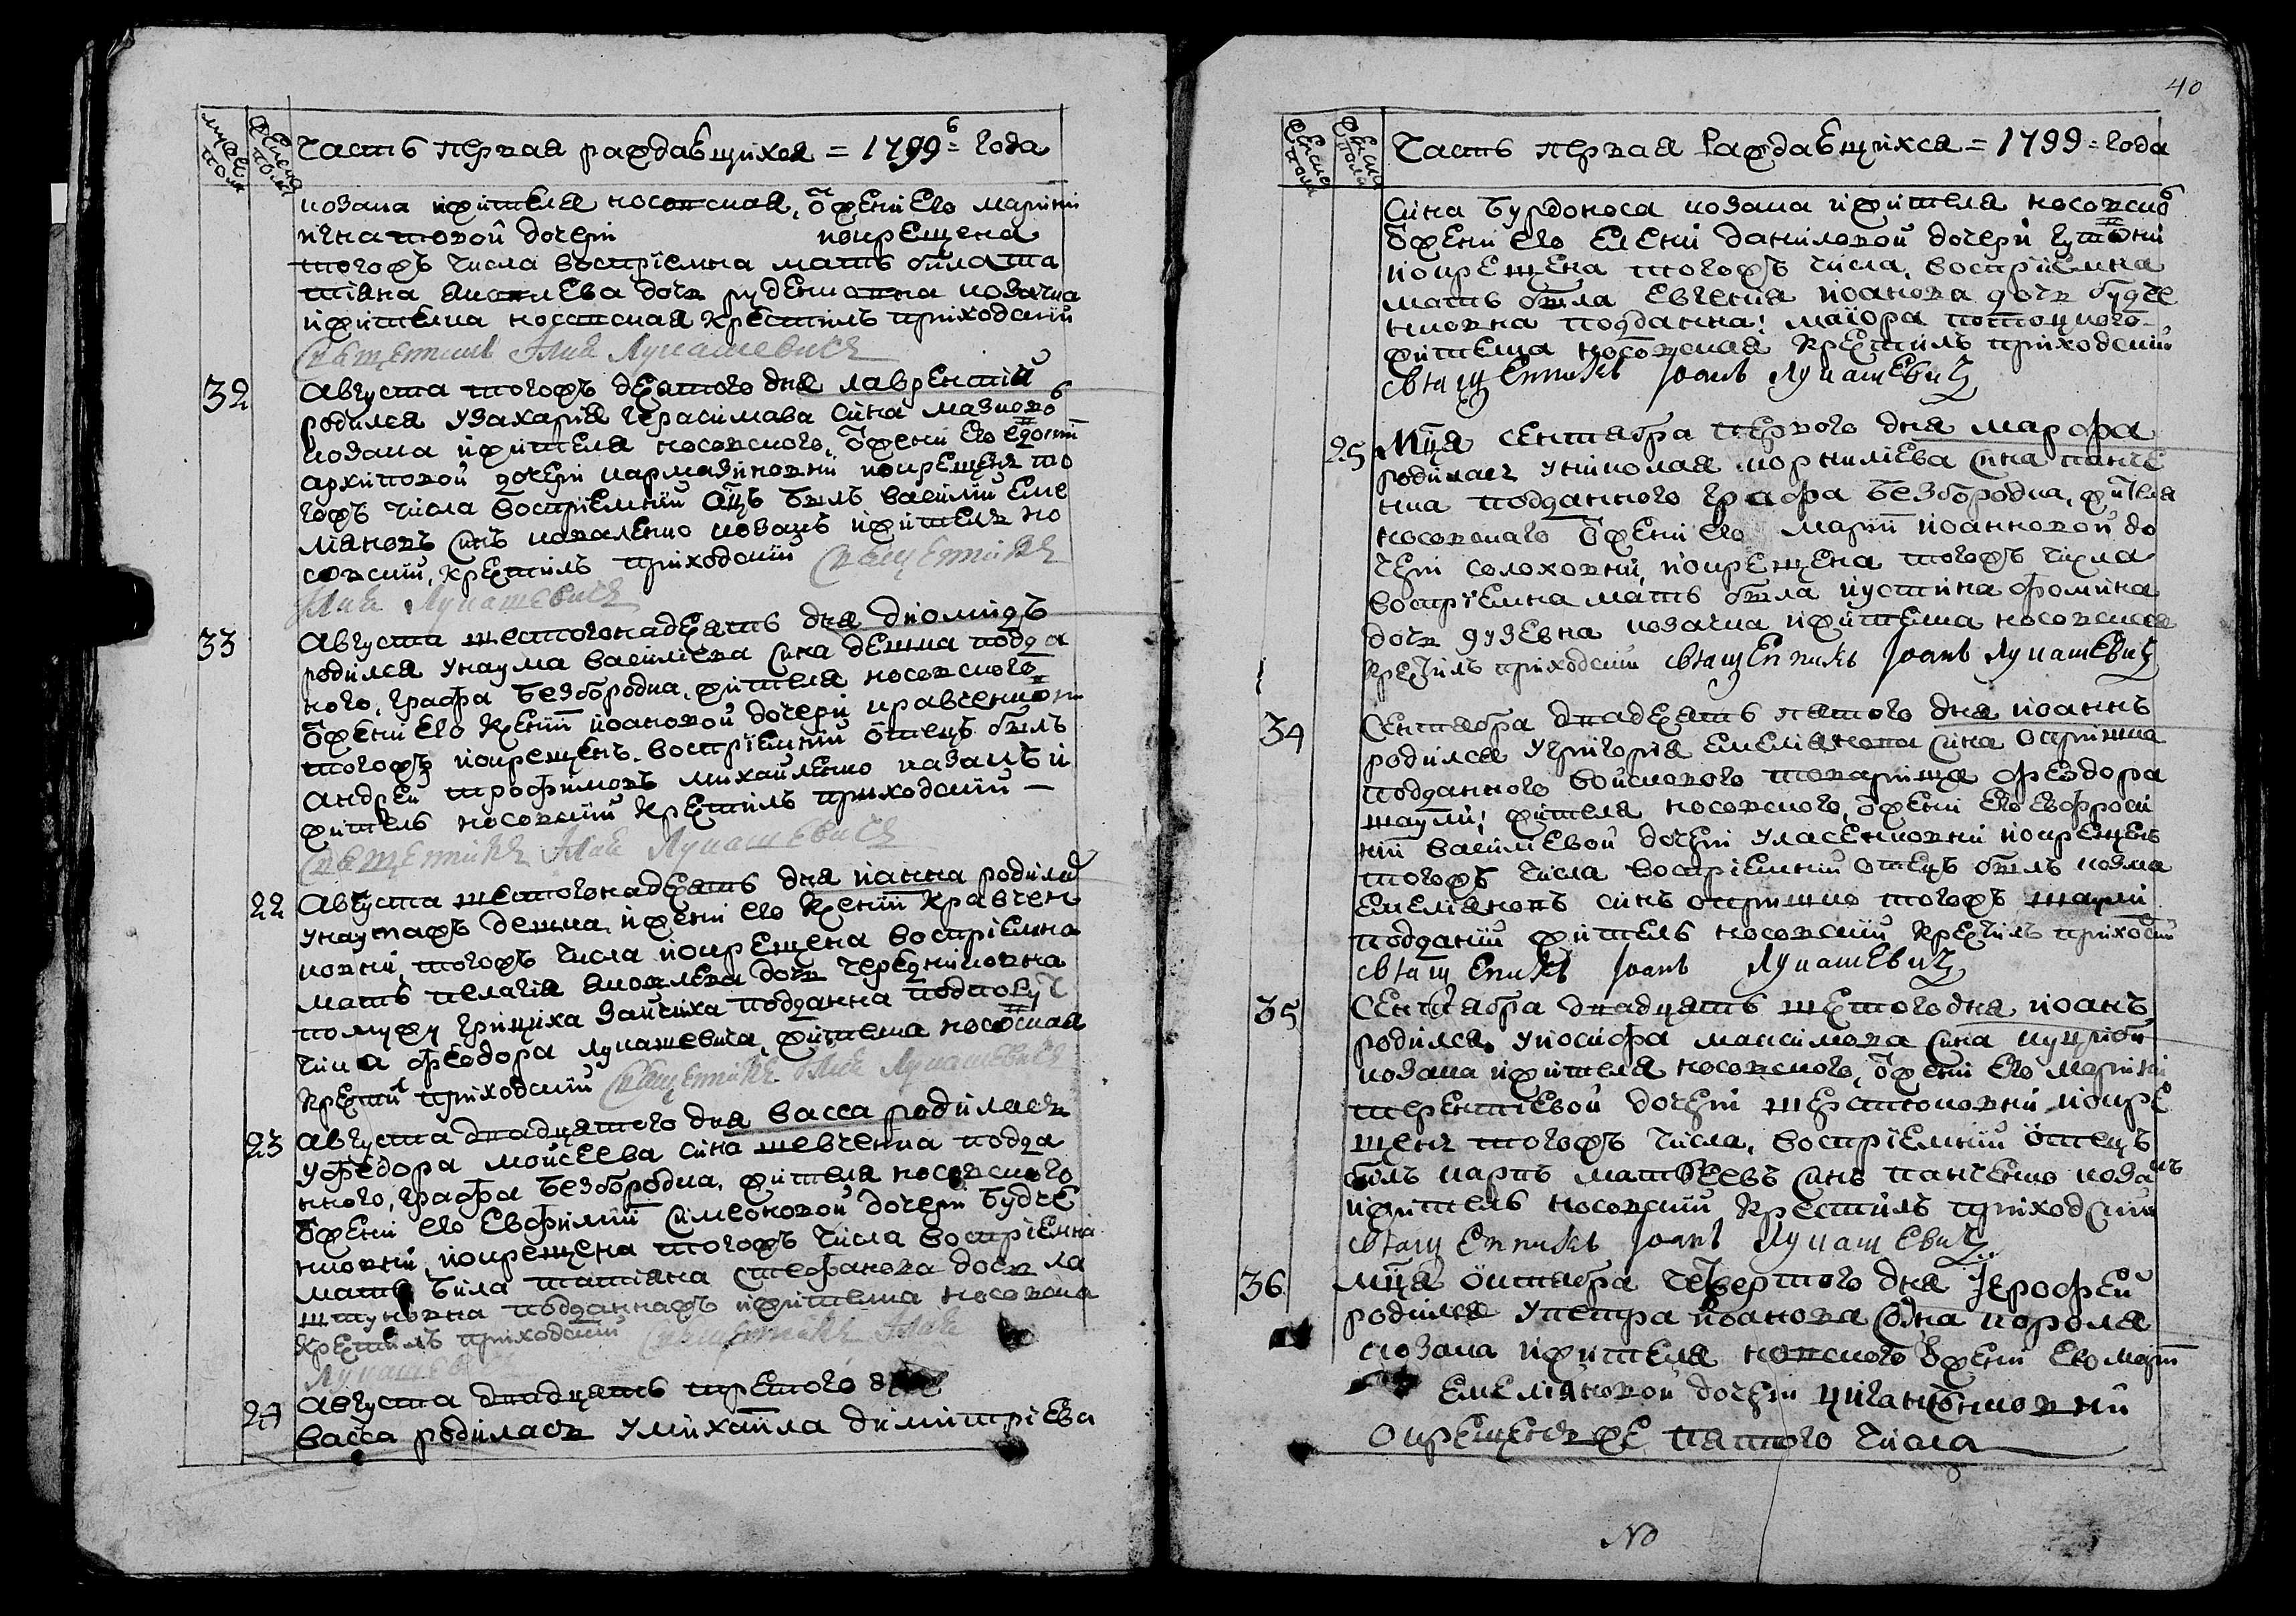 мужеска пола
женска пола
Часть первая раждавшихся = 1799г = года
козака и жителя носовская, ѿ жени его марини
игнатовой дочери покрещена
тогожъ числа воспріемна мать била та
тіяна яковлева дочь руденковна козачка
и жителка носовская крестилъ приходскій
священникъ Илия Лукашевичъ
32 Августа тогожъ девятого дня лаврентій
родился у захарія герасимава сина мазного
козака и жителя носовского, ѿ жени его едокіи
архиповой дочери кармазиновни покрещенъ то
гожъ числа воспріемний ѿцъ билъ василій еме
ляновъ синъ коваленко козакъ и житель но
совскій, крестилъ приходскій священникъ
Илия Лукашевичъ
33 Августа шестогонадесять дня диомидъ
родился у наума василіева сина дешка подда
ного, графа безбородка, жителя носовского
ѿ жени его ксеніи иоановой дочери кравченковни
тогожъ покрещенъ. воспріемний ѿтецъ билъ
андрей трофимовъ михайленко казакъ и
житель носовскій крестилъ приходскій —
священникъ Илия Лукашевичъ
22 Августа шестогонадесять дня іанна родилась
у наумажъ дешка, и жени его ксеніи кравчен
ковни, тогожъ числа покрещена воспріемна
мать пелагія яковлева дочь чередниковна
по мужу грициха заичиха поддана подпоручи
чика феодора лукашевича, жителка носовская
крестилъ приходскій священникъ Илия Лукашевичъ
23 Августа двадцятого дня васса родилась
у федора мойсеева сина шевченка подда
нного, графа безбородка, жителя носовского
ѿ жени его евфиміи симеоновой дочери будче
нковни, покрещена тогожъ числа воспріемна
мать била татіяна стефанова дочь ла
штуковна подданнажъ и жителка носовска
крестилъ приходскій священникъ Илия
Лукашевичъ
24 Августа двадцять третого дня
васса родилась у михаила димитріева
40
женска пола
женска пола
Часть первая Раждавшихся = 1799 = года
Сина бурдоноса козака и жителя носовского
ѿ жени его елени даниловой дочери гутовни
покрещена тогожъ числа, воспріемна
мать била евгения иоанова дочь будче
нковна подданна маіора потоцкого
жителка носовская крестилъ приходскій
священникъ Іоанъ Лукашевичъ
25 Мця сентября первого дня марфа
родилась у николая корниліева сина панче
нка подданного графа безбородка, жителя
носовского ѿ жени его маріи иоанновой до
чери солоховни, покрещена тогожъ числа
воспріемна мать била іустина фомина
дочь дузевна козачка и жителка носовская
крестилъ приходскій священникъ Іоанъ Лукашевичъ
34 Сентября двадесять пятого дня иоаннъ
родился у григорія емеліянова сина опришка
подданного войскового товариша феодора
шаули жителя носовского, ѿ жени его евфроси
ніи василіевой дочери уласенковни покрещенъ
тогожъ числа воспріемний отецъ билъ козма
емеліяновъ синъ опришко тогожъ шаули
подданій житель носовскій крестилъ приходскій
священикъ Іоанъ Лукашевичъ
35 Сентября двадцять шестого дня, иоанъ
родился, у иосифа максимова сина куцрібы
козака и жителя носовского, ѿ жени его марини
терентіевой дочери шерстюковни покре
щенъ тогожъ числа, воспріемний ѿтецъ
билъ карпъ матфеевъ синъ панченко козакъ
и житель носовскій крестилъ приходскій
священникъ Іоанъ Лукашевичъ
36 мця октября четвертого дня Іерофей
родился у петра иоанова сина короля
козака и жителя новского ѿ жени его маріи
емеліяновой дочери циганковни
окрещенъ же пятого числа
No